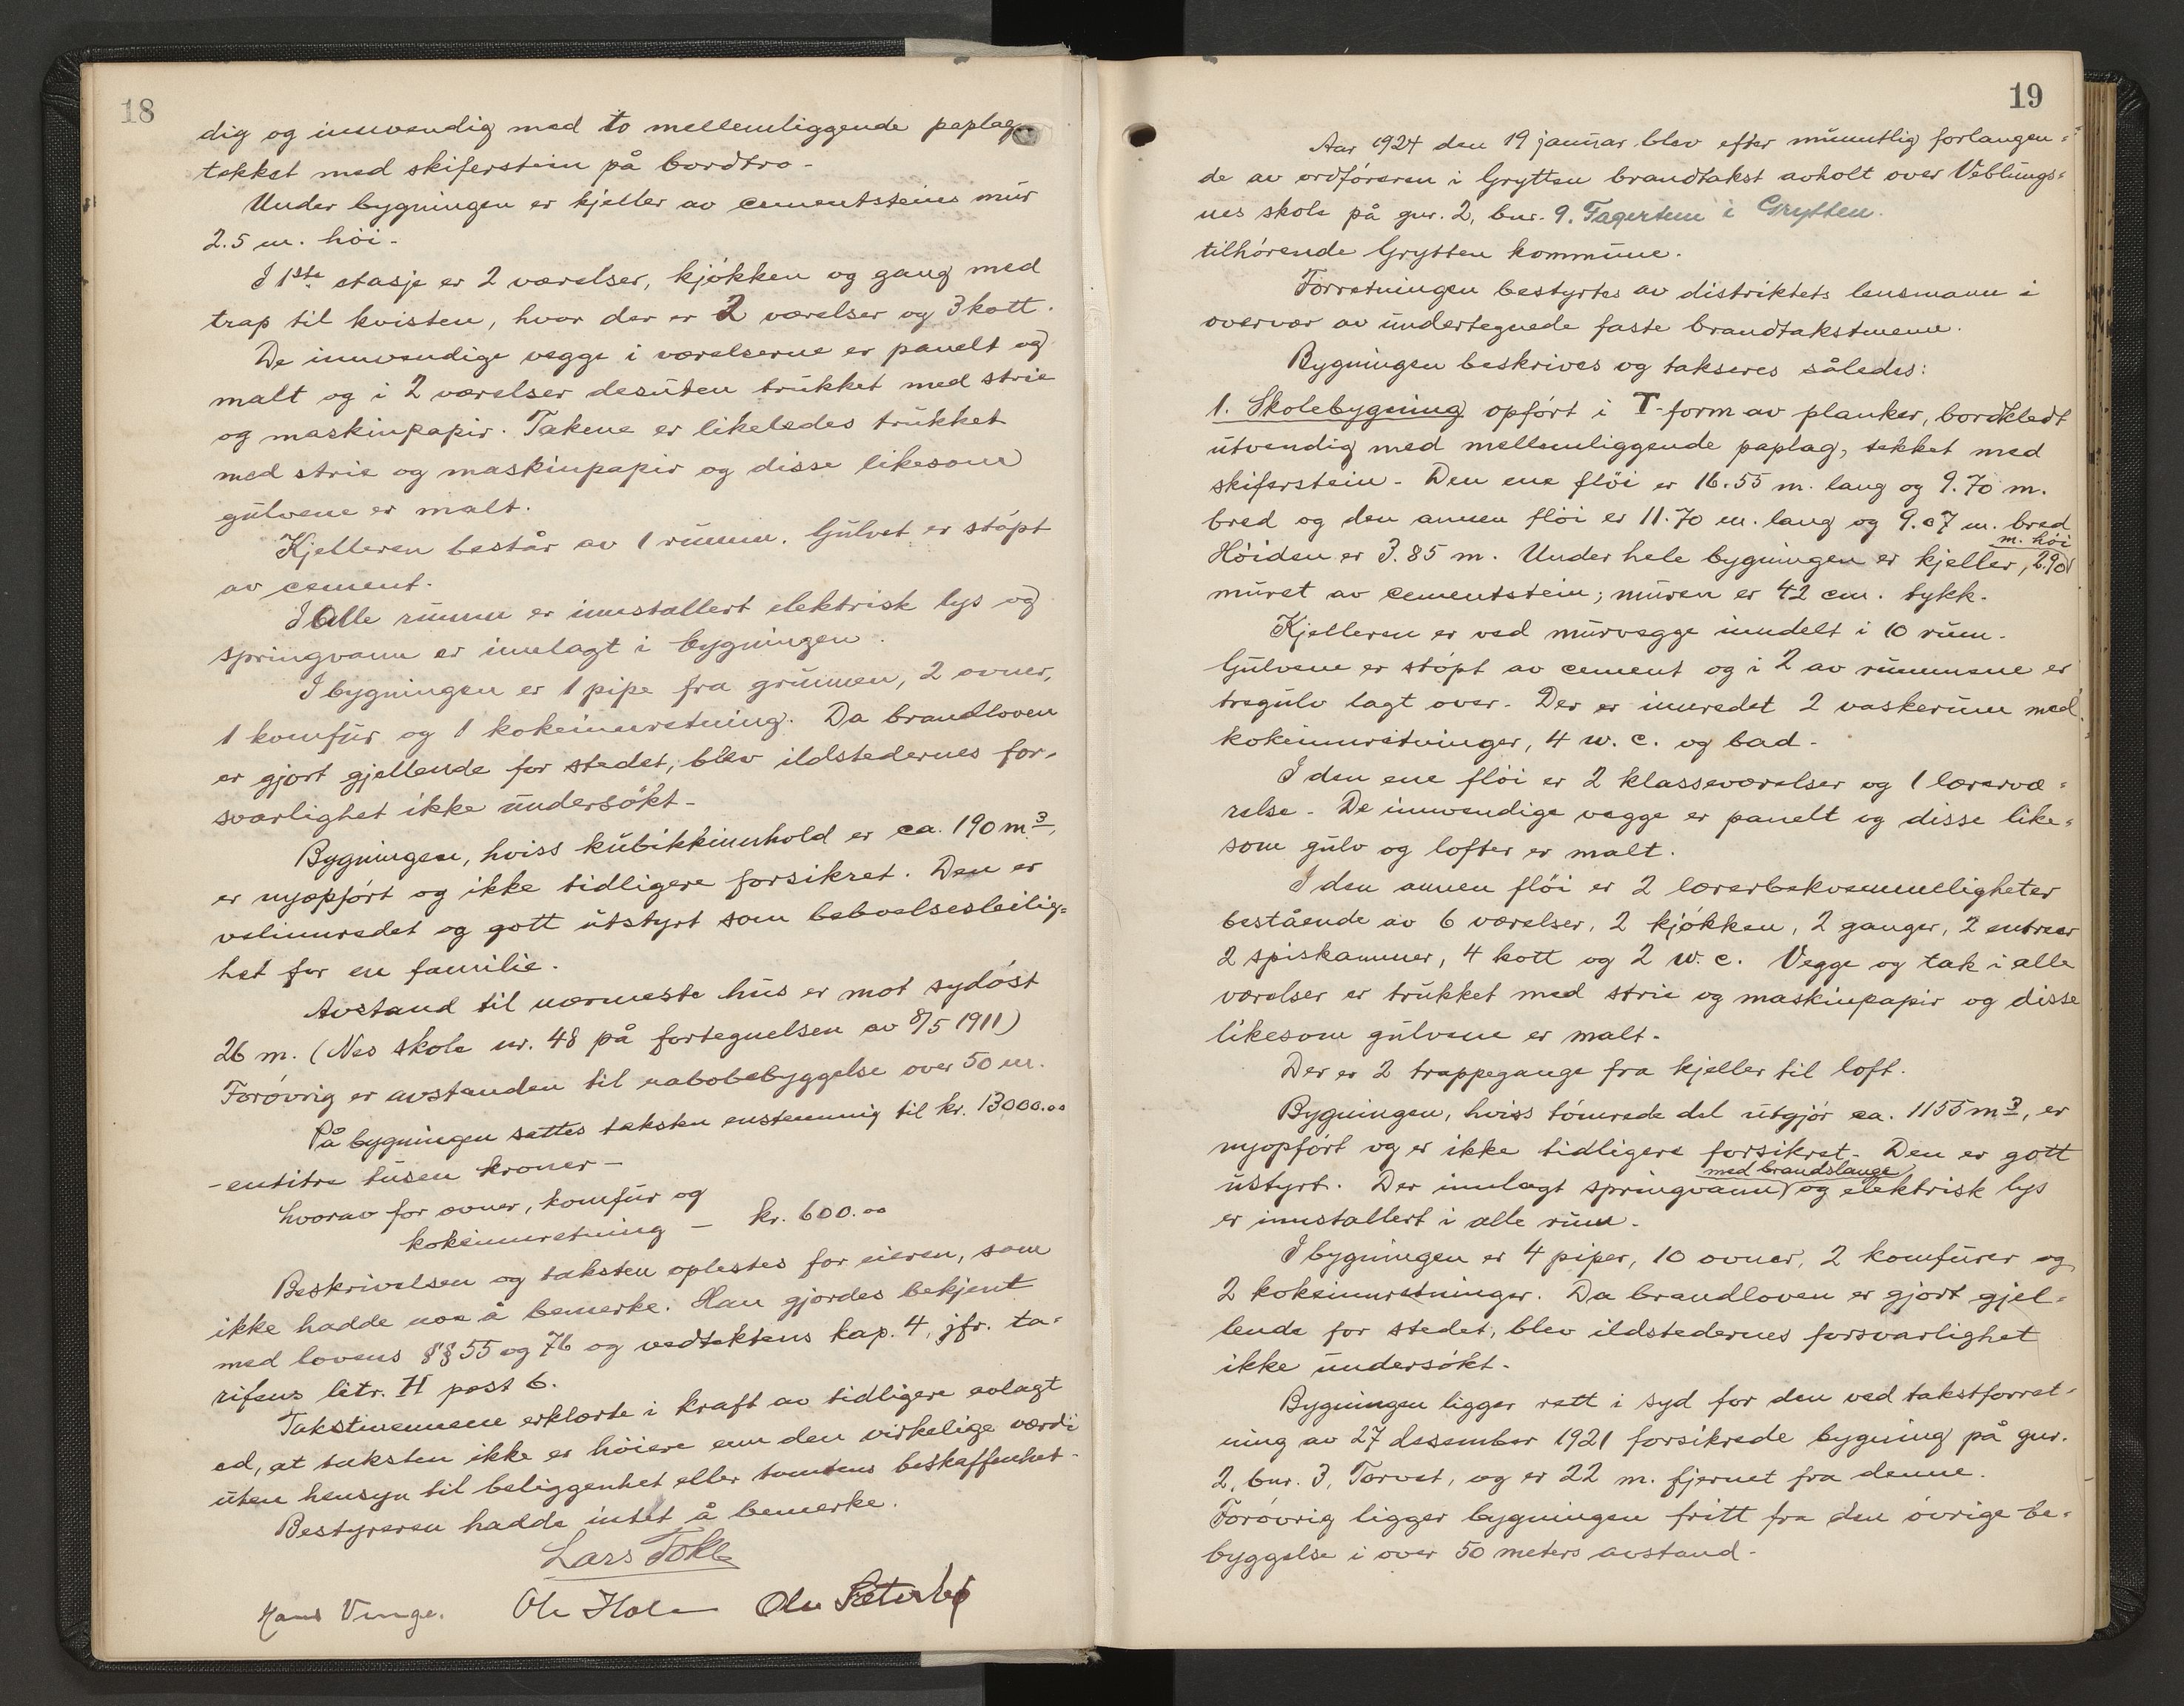 18
dig og innvendig med to mellemliggende paplag,
tekket med skiferstein på bordtro-
Under bygningen er kjeller av cementsteins mur
2.5 m. höi-
I 1ste etasje er 2 værelser, kjökken og gang med
trap til kvisten, hvor der er 2 værelser og 3 kott.
De innvendige vegge i værelserne er panelt og
malt og i 2 værelser desuten trukket med strie
og maskinpapir. Takene er likeledes trukket
med strie og maskinpapir og disse likesom
gulvene er malt.
Kjelleren består av 1 rumm. Gulvet er stöpt
av cement.
I alle rumm er innstallert elektrisk lys og
springvann er innlagt i bygningen.
I bygningen er 1 pipe fra grunnen, 2 ovner,
1 komfur og 1 kokeinnretning. Da brandloven
er gjort gjellende for stedet, blev ildstedernes for-
svarlighet ikke undersökt-
Bygningen, hviss kubikkinnhold er ca. 190 m3,
er nyopfört og ikke tidligere forsikret. Den er
velinnredet og gott utstyrt som beboelsesleilig=
het for en familie.
Avstand til nærmeste hus er mot sydöst
26 m. (Nes skole nr. 48 på fortegnelsen av 8/5 1911)
Forövrig er avstanden til nabobebyggelse over 50 m.
På bygningen sattes taksten enstemmig til kr. 13000.00
-entitre tusen kroner-
hvorav for ovner, komfur og
kokeinnretning - kr. 600.00
Beskrivelsen og taksten oplestes for eieren, som
ikke hadde noe å bemerke. Han gjordes bekjent
med lovens §§ 55 og 76 og vedtektens kap. 4, jfr. ta=
rifens litr. H post 6.
Takstmennene erklærte i kraft av tidligere avlagt
ed, at taksten ikke er höiere enn den virkelige værdi
uten hensyn til beliggenhet eller tomtens beskaffenhet-
Bestyreren hadde intet å bemerke.
Lars Tokle
Hans Venge. Ole Holm Ole Sæterbö
19
Aar 1924 den 19 januar blev efter munntlig forlangen=
de av ordföreren i Grytten brandtakst avholt over Veblungs=
nes skole på gnr. 2, bnr. 9. Fagertun i Grytten.
tilhörende Grytten kommune.
Forretningen bestyrtes av distriktets lensmann i
overvær av undertegnede faste brandtakstmenn.
Bygningen beskrives og takseres således:
1. Skolebygning opfört i T-form av planker, bordkledt
utvendig med mellemliggende paplag, tekket med
skiferstein- Den ene flöi er 16.55 m. lang og 9.70 m.
bred og den annen flöi er 11.70 m. lang og 9.07 m. bred
m. höi
Höiden er 3.85 m. Under hele bygningen er kjeller, 2.90
muret av cementstein; muren er 42 cm. tykk.
Kjelleren er ved murvegge inndelt i 10 rum.
Gulvene er stöpt av cement og i 2 av rummene er
tregulv lagt over. Der er innredet 2 vaskerum med
kokeinnretninger, 4 w. c. og bad-
I den ene flöi er 2 klasseværelser og 1 lærervæ=
relse- De innvendige vegge er panelt og disse like=
som gulv og lofter er malt.
I den annen flöi er 2 lærerbekvemmeligheter
bestående av 6 værelser, 2 kjökken, 2 ganger, 2 entreer
2 spiskammer, 4 kott og 2 w. c. Vegge og tak i alle
værelser er trukket med strie og maskinpapir og disse
likesom gulvene er malt.
Der er 2 trappegange fra kjeller til loft.
Bygningen, hviss tömrede del utgjör ca. 1155 m3, er
nyopfört og er ikke tidligere forsikret- Den er gott
med brandslange
ustyrt. Der innlagt springvann og elektrisk lys
er innstallert i alle rum-
I bygningen er 4 piper, 10 ovner, 2 komfurer og
2 kokeinnretninger. Da brandloven er gjort gjel=
lende for stedet, blev ildstedernes forsvarlighet
ikke undersökt-
Bygningen ligger rett i syd for den ved takstforret-
ning av 27 desember 1921 forsikrede bygning på gnr.
2, bnr. 3, Torvet, og er 22 m. fjernet fra denne.
Forövrig ligger bygningen fritt fra den övrige be-
byggelse i over 50 meters avstand-